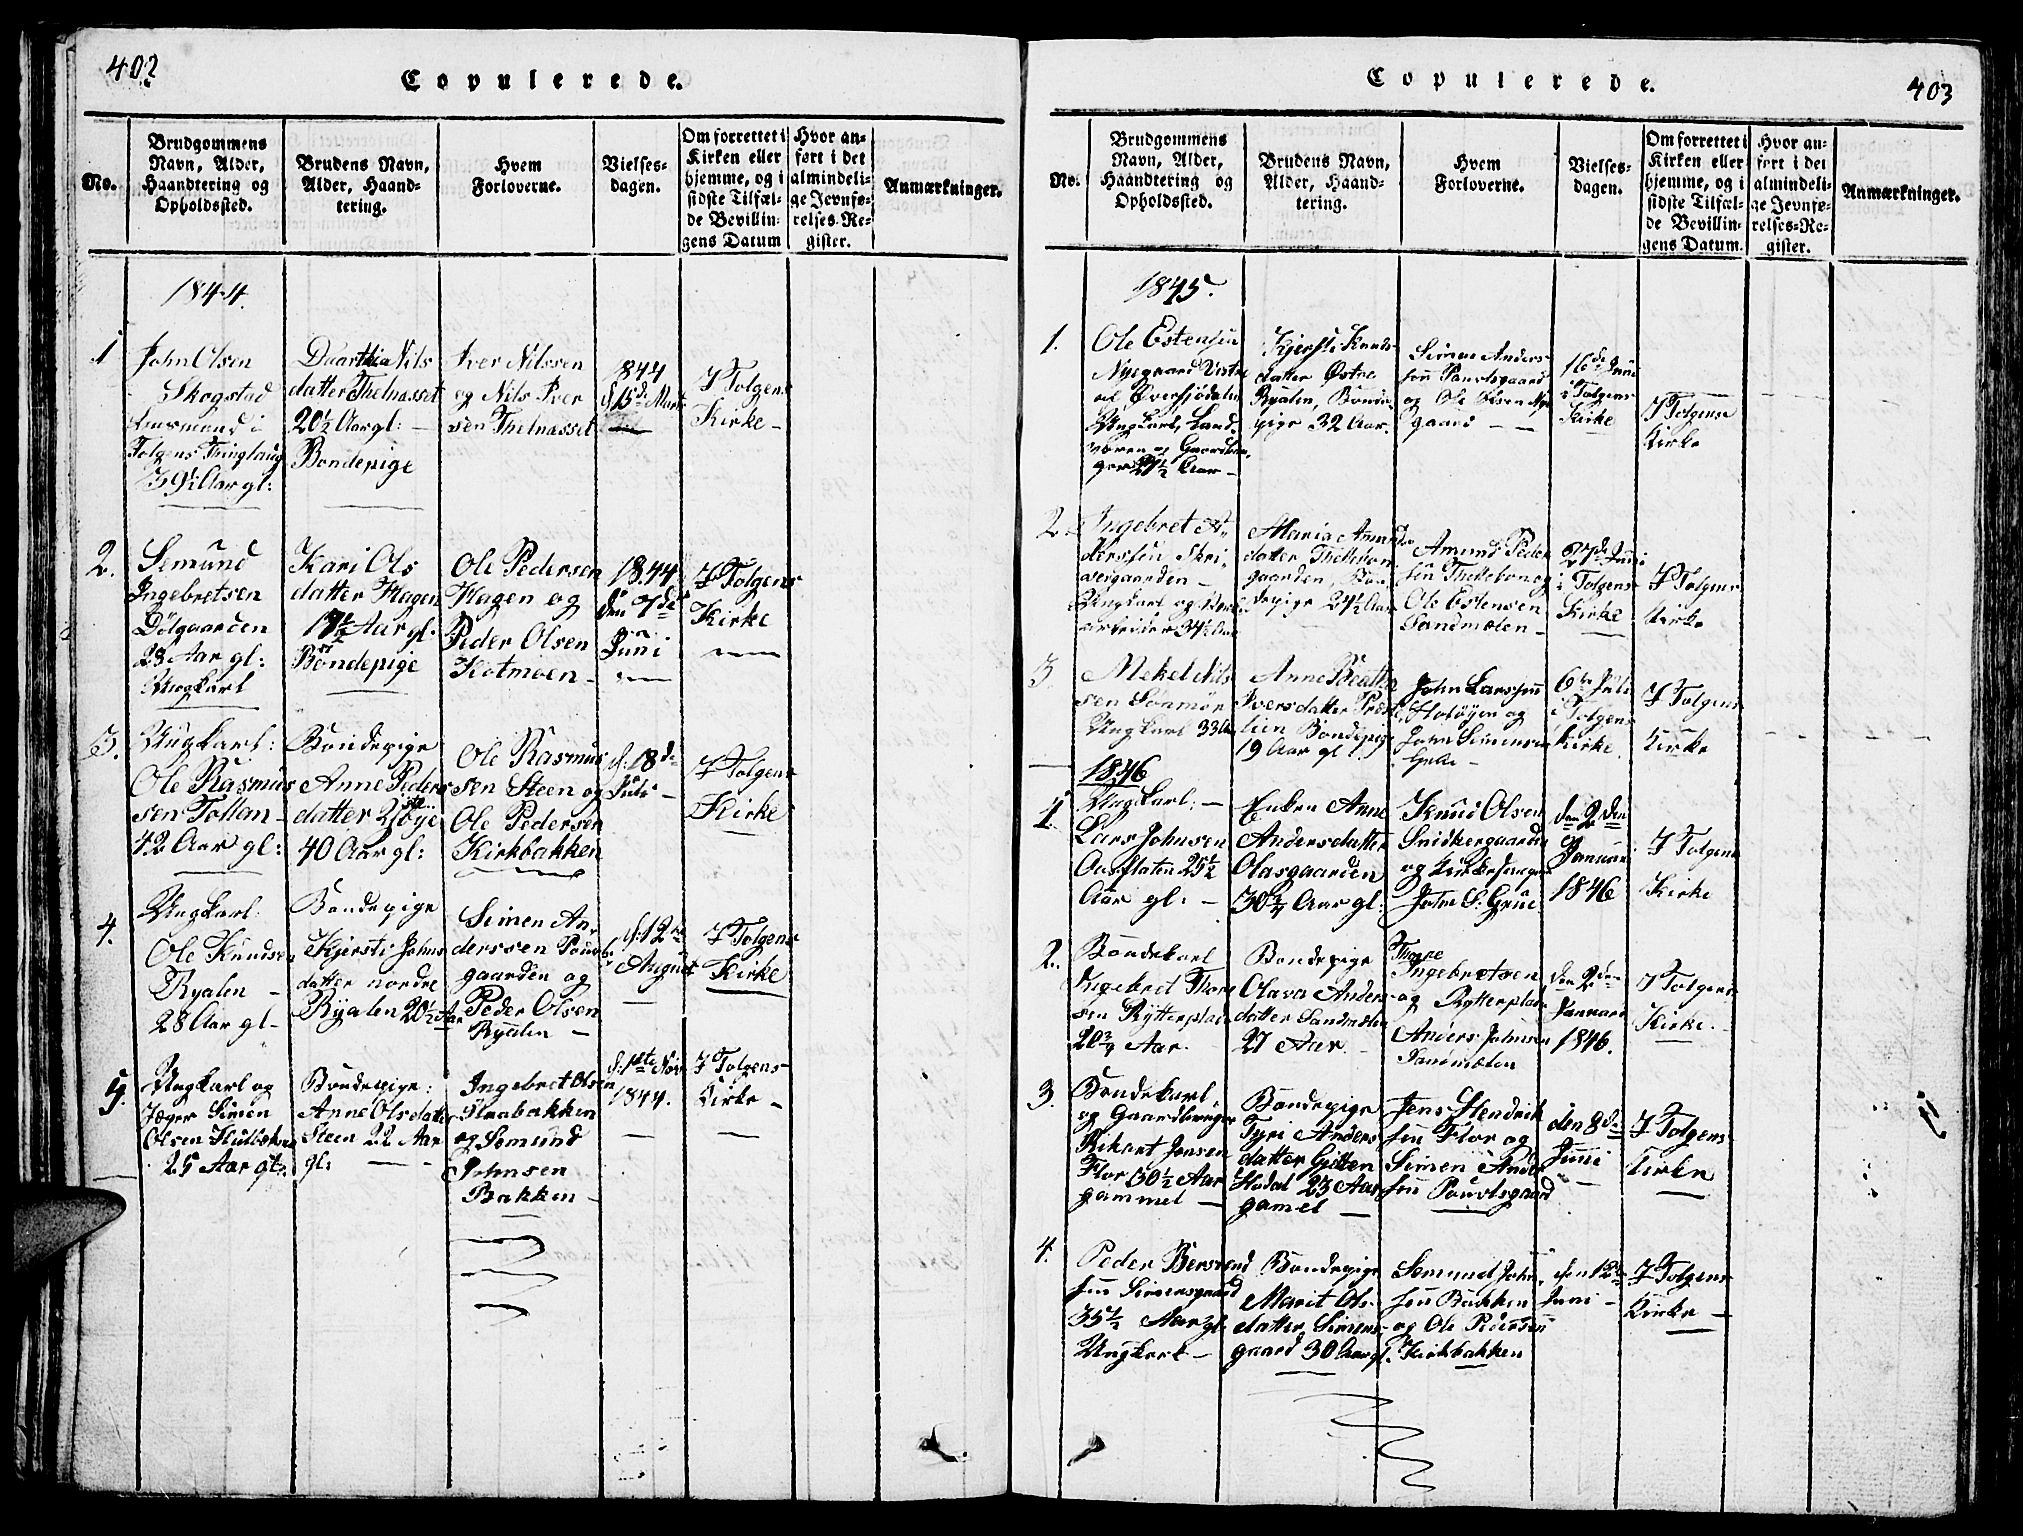 402
Copulerede.
No.
Brudgommens
Navn, Alder,
Haandtering og
Opholdssted.
Brudens Navn,
Alder, Haand-
tering.
Hvem
Forloverne.
Vielses-
dagen.
Om forrettet i
Kirken eller
hjemme, og i
sidste Tilfæl-
de Bevillin-
gens Datum
Hvor an-
ført i det
almindeli-
ge Jevnfø-
relses-Re-
gister.
Anmærkninger.
1844.
1
John Olsen
Skogstad
i
Tolgens Tinglaug
39½ Aar gl:
Nils
datter Thelnasset
20½ Aar gl: -
Bondepige
Iver Nilssen
og Nils Iver
sen Thelnasset
1844
d. 15de Marts
I Tolgens
Kirke -
2.
Semund
Ingebretsen
Dølgaarden
28 Aar gl:
Ungkarl
Kari Ols
datter Hagen
Aar gl.
Bondepige
Ole Pedersen
Hagen og
Peder Olsen
Kotmoen -
1844
den 7de
Juni
I Tolgens
Kirke
3.
Ungkarl:
Ole Rasmus
sen Tollan -
42 Aar gl:
Bondepige
Anne Peders
datter
40 Aar gl:
Ole Rasmus
sen Steen og
Ole Pedersen
Kirkbakken
d. 18de
Juli -
I Tolgens
Kirke
4.
Ungkarl:
Ole Knudsen
Ryalen -
28 Aar gl -
Bondepige
Kjersti Johns
datter nordre
Ryalen 20½ Aar
Simen An-
derssen
gaarden og
Peder Olsen
Ryalen -
d. 12te
August
I Tolgens
Kirke
5.
Ungkarl og
Jæger Simen
Olsen
25 Aar gl.
Bondepige:
Anne Olsdatter
Steen 22 Aar
gl:
Ingebret Olsen
og Semund
Johnsen
Bakken -
d. 1ste Nov
1844.
I Tolgens
Kirke -
403
Copulerede.
No.
Brudgommens
Navn, Alder,
Haandtering og
Opholdssted.
Brudens Navn,
Alder, Haand-
tering.
Hvem
Forloverne.
Vielses-
dagen.
Om forrettet i
Kirken eller
hjemme, og i
sidste Tilfæl-
de Bevillin-
gens Datum.
Hvor an-
ført i det
almindeli-
ge Jevnfø-
relses-Re-
gister.
Anmærkninger.
1845.
1.
Ole Estensen
Nygaard
Ungkarl, Land-
27½ Aar -
Kjersti Knuds-
datter Østre
Ryalen, Bonde-
pige 32 Aar.
Simen Anders-
sen
og Ole Olsen Ny-
gaard - -
16de Juni
i Tolgens
Kirke
I Tolgens
Kirke
2.
Ingebret An-
derssen Skri-
vergaarden -
Ungkarl og
arbeider 34½ Aar
Maria Amunds
datter
gaarden, Bon-
depige 24½ Aar
Amund Peder
sen og
Ole Estensen
Sandmælen -
27de Juni
i Tolgens
Kirke
I Tolgens
Kirke
3.
Mekel Nils
sen
Ungkarl 33 Aar
Anne Beatha
Iversdatter
lien Bondepige
19 Aar gl
John Larssen
Holøyen og
John Simensen
6te Juli
i Tolgens
Kirke
I Tolgens
Kirke
1846
1.
Ungkarl: -
Lars Johnsen
Ousflaten 25½
Aar gl: -
Enken Anne
Andersdatter
Olasgaarden
30¾ Aar gl:
Knud Olsen
Snidkergaarden
og Kirkesanger
John S:
den 2den
Januar
1846
I Tolgens
Kirke
2.
Bondekarl
Ingebret Thore
sen Rytterplads
20¾ Aar.
Bondepige
Olava Anders
datter Sandmælen
27 Aar -
Thore
Ingebretsen
og Rytterplads
Anders Johnsen
Sandmælen
den 2den
Januari
1846.
I Tolgens
Kirke.
3.
Bondekarl
og Gaardbruger
Rikart Jensen
Flor 30½ Aar
gammel -
Bondepige
Tyri Anders
datter Gjelten
Hodal 23 Aar
gamel -
Jens Hendrik
sen Flor og
Simen Ander
sen
den 8de
Juni
I Tolgens
Kirke
4.
Peder Bersvend
sen Simensgaard
35½ Aar gl.
Ungkarl -
Bondepige
Marit Ols-
datter Simens-
gaard 30 Aar gl.
Semund John-
sen Bakken
og Ole Pedersen
Kirkbakken
den 12te
Juni -
I Tolgens
Kirke -